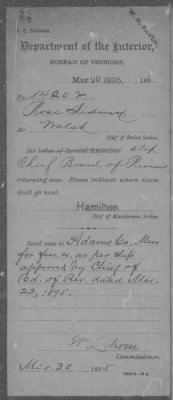 Department of the Interior,
BUREAU OF PENSIONS,
Mar 20 1895, 188
No. 14202
Rose Sidney
Walsh
Chief of Review Section.
See letter of Special Examiner slip
Chief Board of Review
returning case. Please indicate where claim
shall go next.
Hamilton
Chief of Miscellaneous Section.
Send case to Adams Co. Miss
for fur. ex. as per slip
approved by Chief of
Bd. of Rev. dated Mar.
23, 1895.
Commissioner.
30 1895